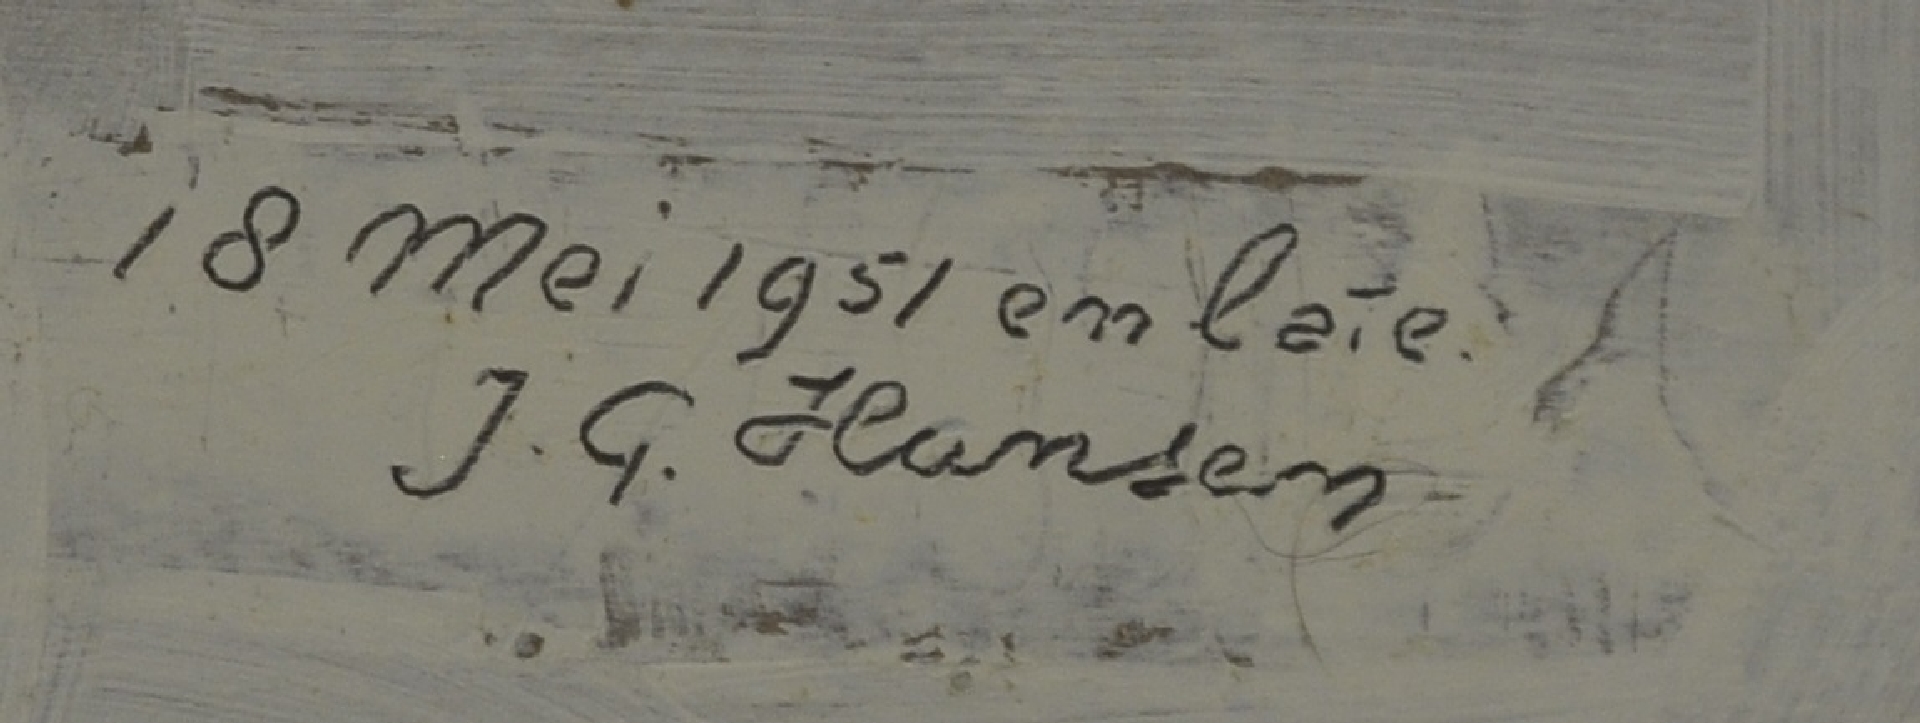 18 Mei 1951 en laie.
J. G. Hansen